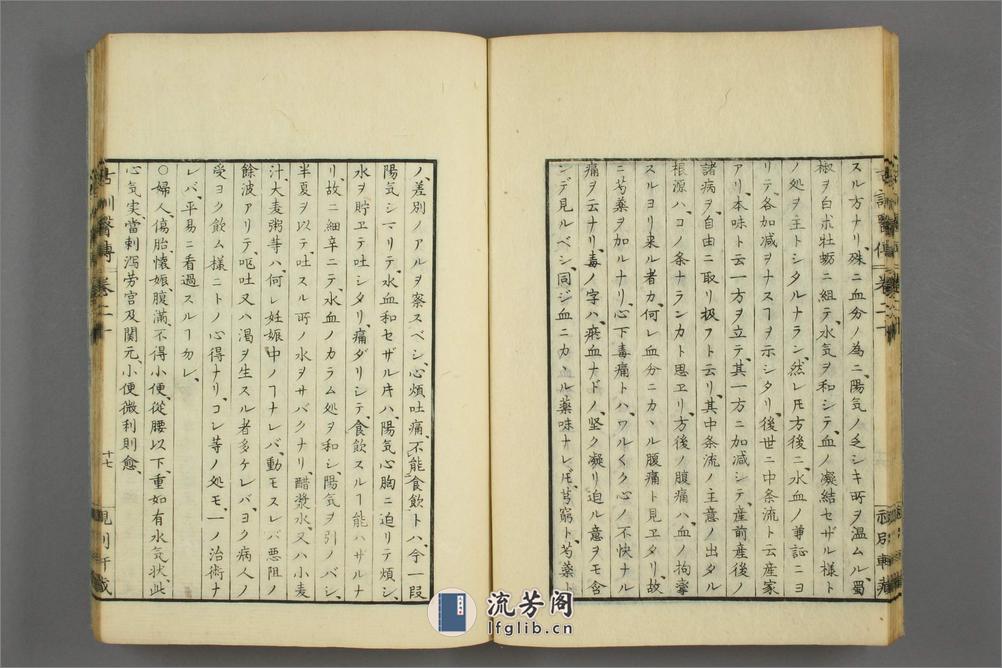 スル方ナリ、殊ニ血分ノ為ニ、陽気ノ乏シキ所ヲ温ムル蜀
椒ヲ白朮牡蛎ニ組テ、水気ヲ和シテ、血ノ凝結セザル様ト
ノ処ヲ主トシタルナラン、然レ𪜈方後ニ、水血ノ兼証ニヨ
リテ、各加減ヲナスヿヲ示シタリ、後世ニ中条流ト云産家
アリ、本味ト云一方ヲ立テ、其一方ニ加減シテ、産前産後ノ
諸病ヲ、自由ニ取リ扱フト云リ、其中条流ノ主意ノ出タル
根源ハ、コノ条ナランカト思ヱリ、方後ノ腹痛ハ、血ノ拘攣
スルヨリ来ル者カ、何レ血分ニカヽル腹痛ト見ヱタリ、故
ニ芍薬ヲ加ルナリ、心下毒痛トハ、ワルくク心ノ不快ナル
痛ヲ云ナリ、毒ノ字ハ、瘀血ナドノ、堅ク凝リ迫ル意ヲモ含
ンデ見ルベシ、同ジ血ニカヽル薬味ナレ𪜈、芎窮ト、芍薬ト
ノ、差別ノアルヲ察スベシ、心煩吐痛、不能食飲トハ、今一段
陽気シマリテ、水血和セザル片ハ、陽気心胸ニ迫リテ煩シ、
水ヲ貯ヱテ吐シタリ、痛ダリシテ、食飲スルヿ能ハザルナ
リ、故ニ細辛ニテ、水血ノカラム処ヲ和シ、陽気ヲ引ノバシ、
半夏ヲ以テ、吐スル所ノ水ヲサバクナリ、醋漿水、又ハ小麦
汁、大麦粥等ハ、何レ妊娠中ノヿナレバ、動モスレバ悪阻ノ
餘波アリテ、嘔吐又ハ渇ヲ生スル者多ケレバ、ヨク病人ノ
受ヨク飲ム様ニトノ心得ナリ、コレ等ノ処モ、一ノ治術ナ
レバ、平易ニ看過スルヿ勿レ、
〇婦人、傷胎、懐娠、腹満、不得小便、從腰以下、重如有水気状、此
心気実、當刺瀉労宮及関元、小便微利則愈、
十七
流芳阁
lfglib.cn